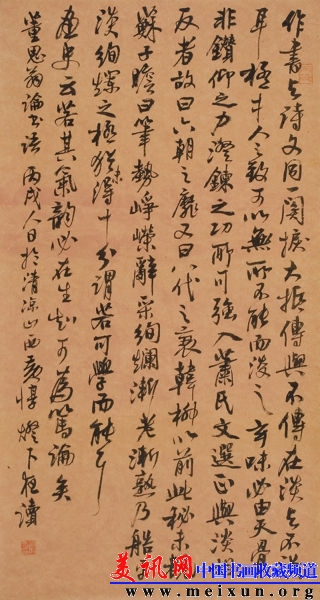 作書與詩文同一関捩大抵傳與不傳在淡與不淡
耳極才人之致可以無所不能而淡之玄味必由天骨
非鑽仰之力澄鍊之功所可強入蕭氏文選正與淡相
反者故曰六朝之靡又曰八代之衰韓柳以前此秘未覩
蘇子瞻曰筆勢崢嶸辭采絢爛漸老漸熟乃造平
淡絢爛之極猶未得十分謂若可學而能耳
畫史云若其氣韻必在生知可為篤論矣
董思翁論書語 丙戌人日於清涼山西黃惇燈下夜讀
美讯网 中国书画收藏频道
www.meixun.org